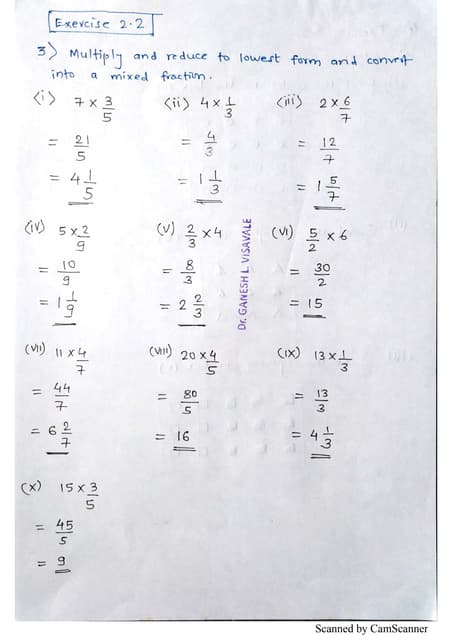 Exercise 2.2
3) Multiply and reduce to lowest form and convert
into a mixed fraction.
(i) 7 × 3/5
= 21/5
= 4 1/5
(ii) 4 × 1/3
= 4/3
= 1 1/3
(iii) 2 × 6/7
= 12/7
= 1 5/7
(iv) 5 × 2/9
= 10/9
= 1 1/9
(v) 2/3 × 4
= 8/3
= 2 2/3
(vi) 5/2 × 6
= 30/2
= 15
Dr. GANESH L. VISAVALE
(vii) 11 × 4/7
= 44/7
= 6 2/7
(viii) 20 × 4/5
= 80/5
= 16
(ix) 13 × 1/3
= 13/3
= 4 1/3
(x) 15 × 3/5
= 45/5
= 9
Scanned by CamScanner